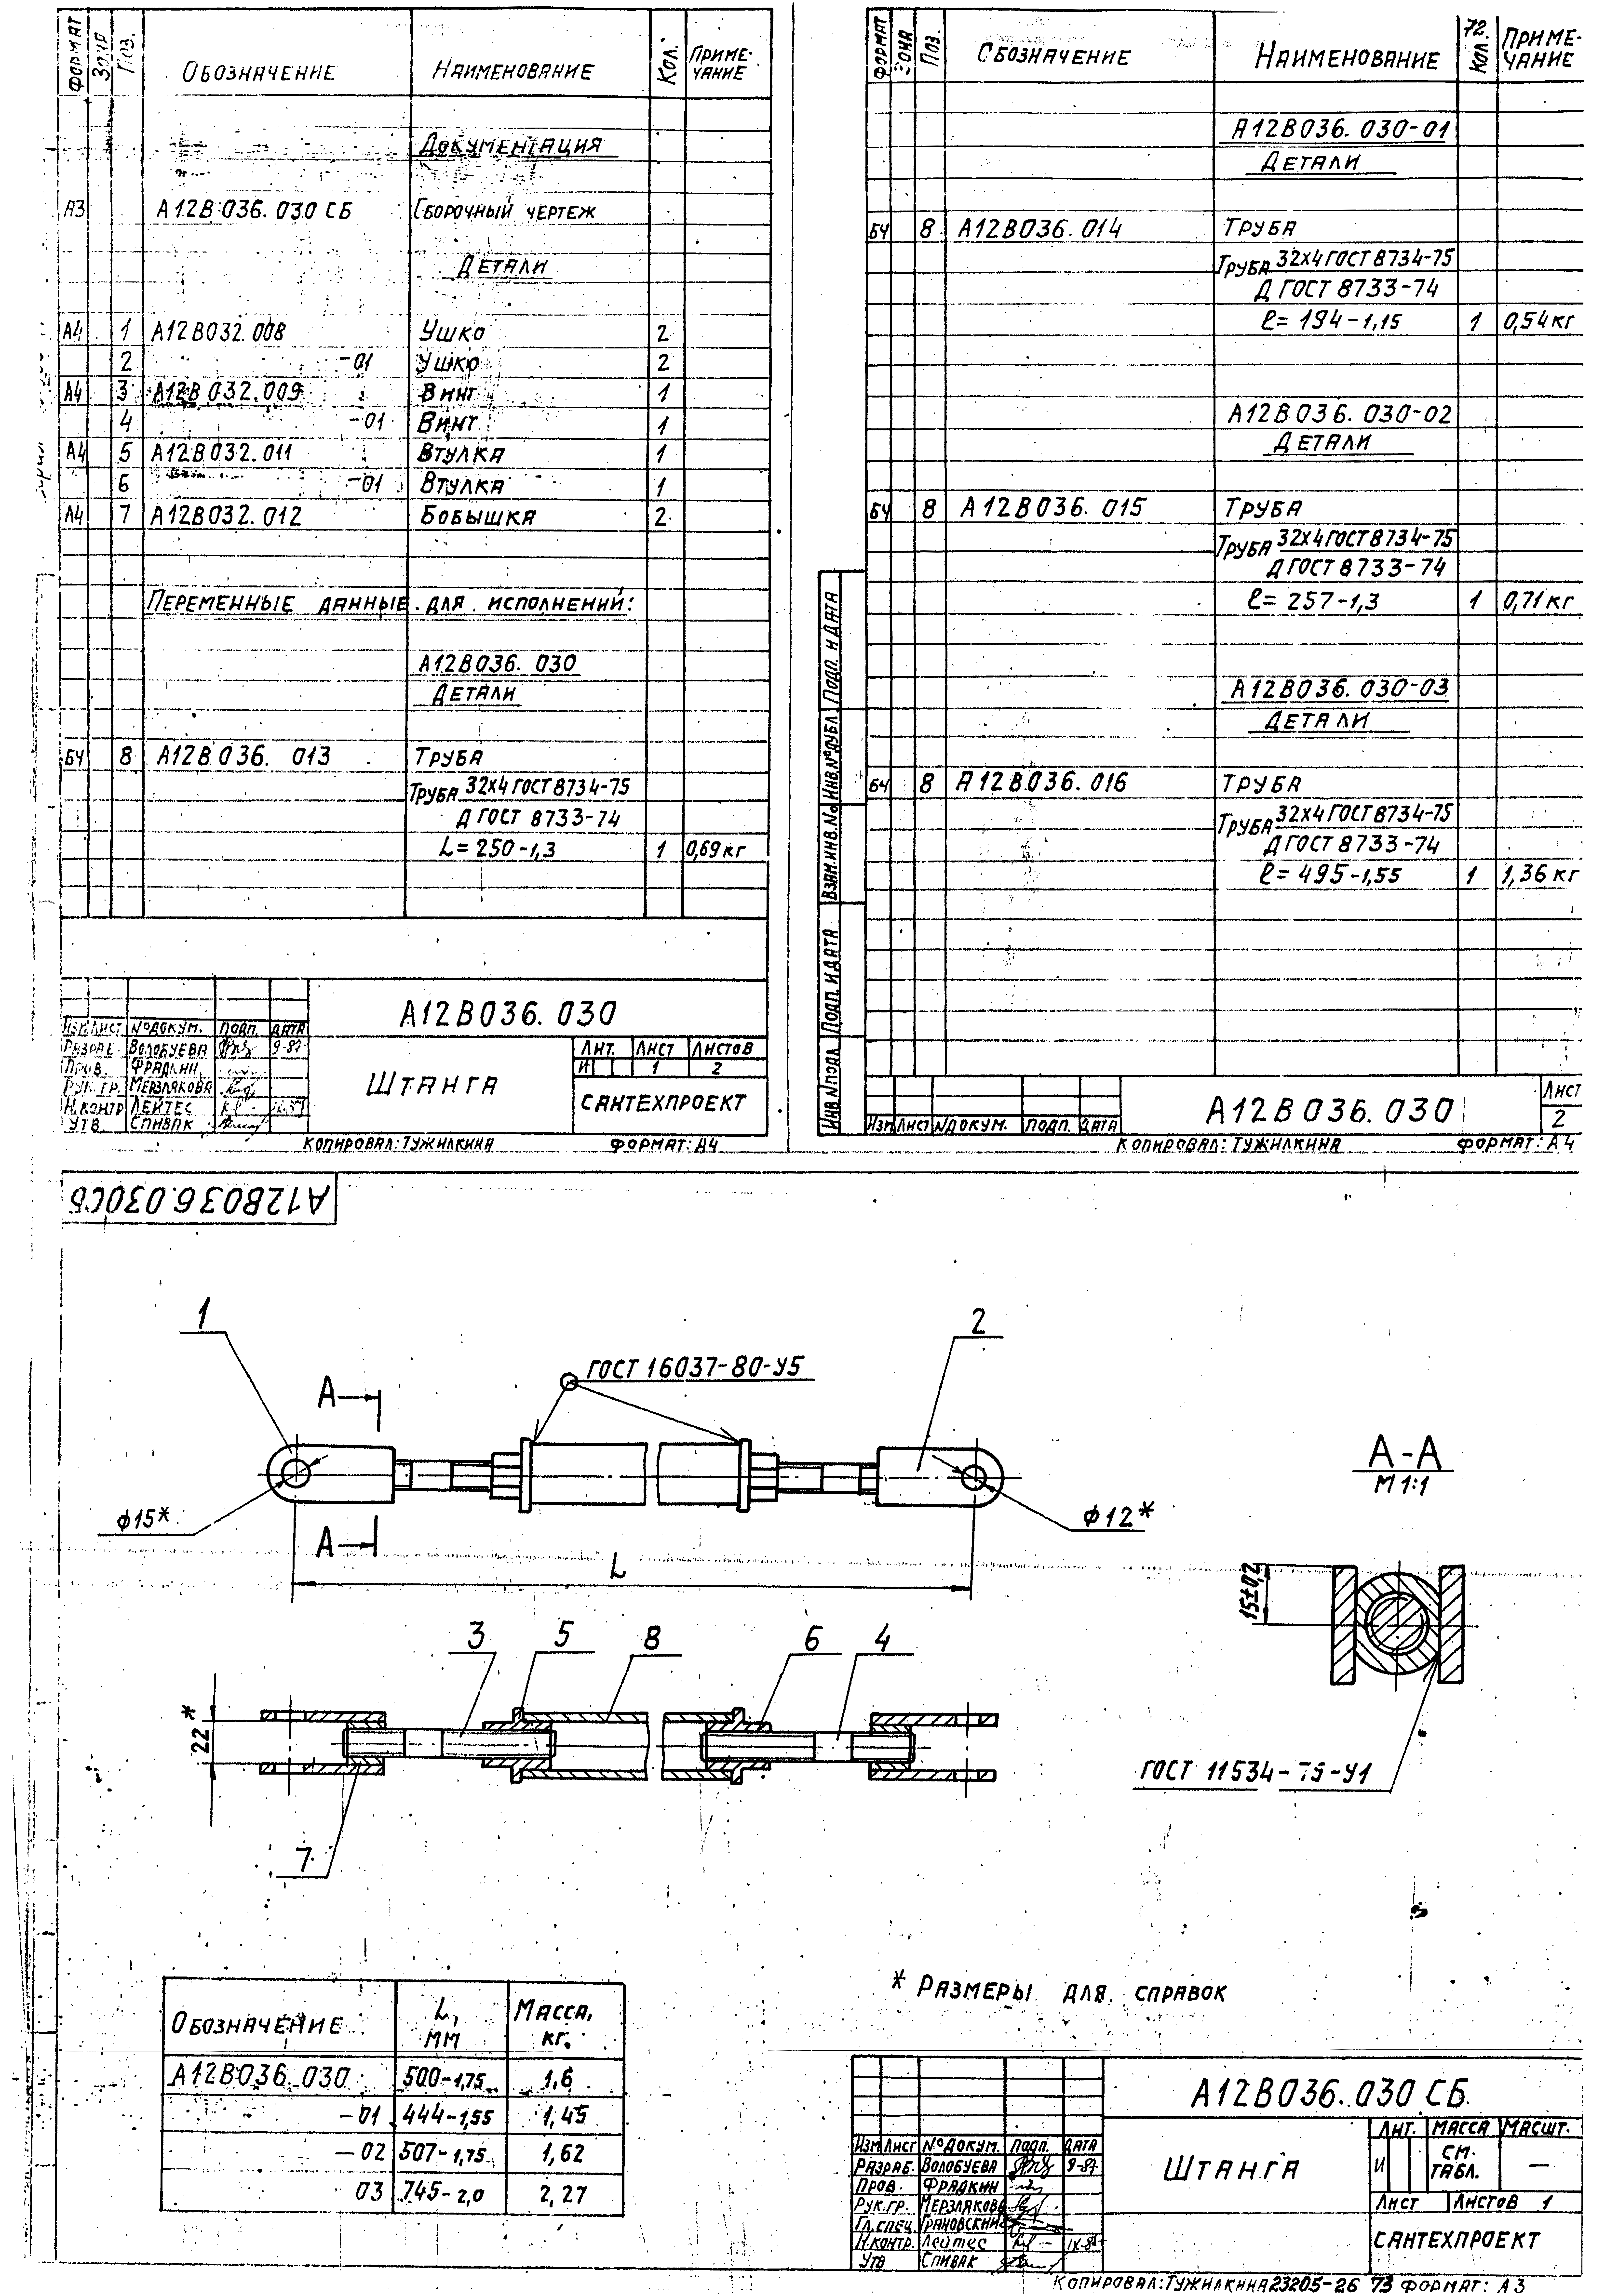 ФОРМАТ ЗОНА ПОЗ. ОБОЗНАЧЕНИЕ НАИМЕНОВАНИЕ КОЛ. ПРИМЕ-ЧАНИЕ
ДОКУМЕНТАЦИЯ
А3 А12В036.030 СБ СБОРОЧНЫЙ ЧЕРТЕЖ
ДЕТАЛИ
А4 1 А12В032.008 УШКО 2
2 -01 УШКО 2
А4 3 А12В032.009 ВИНТ 1
4 -01 ВИНТ 1
А4 5 А12В032.011 ВТУЛКА 1
6 -01 ВТУЛКА 1
А4 7 А12В032.012 БОБЫШКА 2
ПЕРЕМЕННЫЕ ДАННЫЕ ДЛЯ ИСПОЛНЕНИЙ:
А12В036.030
ДЕТАЛИ
БЧ 8 А12В036.013 ТРУБА
ТРУБА 32х4 ГОСТ 8734-75
Д ГОСТ 8733-74
L=250-1,3 1 0,69 кг
ИЗМ ЛИСТ №ДОКУМ. ПОДП. ДАТА
РАЗРАБ. ВОЛОБУЕВА 9-87
ПРОВ. ФРАДКИН
РУК.ГР. МЕРЗЛЯКОВА
Н.КОНТР ЛЕЙТЕС
УТВ. СПИВАК
А12В036.030
ШТАНГА
ЛИТ. ЛИСТ ЛИСТОВ
И 1 2
САНТЕХПРОЕКТ
КОПИРОВАЛ: ТУЖИЛКИНА ФОРМАТ: А4
72.
ФОРМАТ ЗОНА ПОЗ. ОБОЗНАЧЕНИЕ НАИМЕНОВАНИЕ КОЛ. ПРИМЕ-ЧАНИЕ
А12В036.030-01
ДЕТАЛИ
БЧ 8 А12В036.014 ТРУБА
ТРУБА 32х4 ГОСТ 8734-75
Д ГОСТ 8733-74
ℓ=194-1,15 1 0,54 кг
А12В036.030-02
ДЕТАЛИ
БЧ 8 А12В036.015 ТРУБА
ТРУБА 32х4 ГОСТ 8734-75
Д ГОСТ 8733-74
ℓ=257-1,3 1 0,71 кг
А12В036.030-03
ДЕТАЛИ
БЧ 8 А12В036.016 ТРУБА
ТРУБА 32х4 ГОСТ 8734-75
Д ГОСТ 8733-74
ℓ=495-1,55 1 1,36 кг
ИНВ №ПОДЛ ПОДП. И ДАТА ВЗАМ.ИНВ.№ ИНВ.№ДУБЛ. ПОДП. И ДАТА
ИЗМ ЛИСТ №ДОКУМ. ПОДП. ДАТА
А12В036.030
ЛИСТ
2
КОПИРОВАЛ: ТУЖИЛКИНА ФОРМАТ: А4
А12В036.030СБ
1
2
А
ГОСТ 16037-80-У5
А-А
М 1:1
ϕ15*
ϕ12*
А
L
15±0,2
3 5 8 6 4
22*
7
ГОСТ 11534-75-У1
* РАЗМЕРЫ ДЛЯ СПРАВОК
ОБОЗНАЧЕНИЕ L, ММ МАССА, КГ.
А12В036.030 500-1,75 1,6
-01 444-1,55 1,45
-02 507-1,75 1,62
03 745-2,0 2,27
А12В036.030 СБ
ИЗМ ЛИСТ №ДОКУМ. ПОДП. ДАТА
РАЗРАБ. ВОЛОБУЕВА 9-87
ПРОВ. ФРАДКИН
РУК.ГР. МЕРЗЛЯКОВА
ГЛ.СПЕЦ. ГРАНОВСКИЙ
Н.КОНТР. ЛЕЙТЕС
УТВ СПИВАК
ШТАНГА
ЛИТ. МАССА МАСШТ.
И СМ. ТАБЛ. —
ЛИСТ ЛИСТОВ 1
САНТЕХПРОЕКТ
КОПИРОВАЛ: ТУЖИЛКИНА 23205-26 73 ФОРМАТ: А3